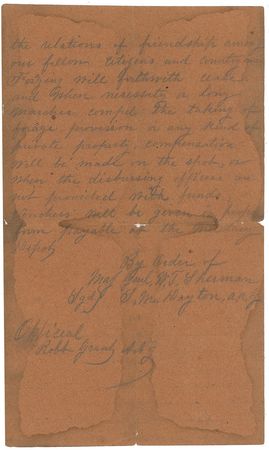 the relations of friendship among
our fellow citizens and countrymen
Foraging will forthwith cease
and When necessity or long
marches compel The taking of
forage provision or any kind of
private property, compensation
will be made on the spot, or
when the disbursing officers are
not provided With funds
Vouchers will be given in proper
form payable at the nearest
Depot
By Order of
Maj Genl W. T. Sherman
Sgd L. M. Dayton, A.A.G.
Official
Robt